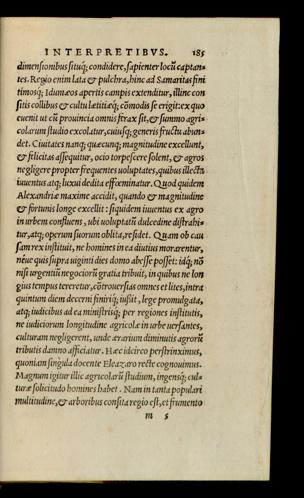 INTERPRETIBVS. 185
dimensionibus sitúq; condidere, sapienter locũ captan-
tes. Regio enim lata & pulchra, hinc ad Samaritas fini
timosq; Idumæos apertis campis extenditur, illinc con
sitis collibus & cultu lætitiæq; cõmodis se erigit: ex quo
euenit ut cũ prouincia omnis strax sit, & summo agri-
colarum studio excolatur, cuiusq; generis fructu abun-
det. Ciuitates nanq; quæcunq; magnitudine excellunt,
& filicitas assequitur, ocio torpescere solent, & agros
negligere propter frequentes uoluptates, quibus illecta
iuuentus atq; luxui dedita effœminatur. Quod quidem
Alexandriæ maxime accidit, quando & magnitudine
& fortunis longe excellit: siquidem iuuentus ex agro
in urbem confluens, ubi uoluptatũ dulcedine distrahi-
tur, atq; operum suorum oblita, residet. Quam ob cau
sam rex instituit, ne homines in ea diutius morarentur,
néue quis supra uiginti dies domo abesse posset: idq; nõ
nisi urgentiũ negociorũ gratia tribuit, in quibus ne lon
gius tempus tereretur, cõtrouersias omnes et lites, intra
quintum diem decerni finiriq; iussit, lege promulgata,
atq; iudicibus ad ea ministrisq; per regiones institutis,
ne iudiciorum longitudine agricolæ in urbe uersantes,
culturam negligerent, unde ærarium diminutis agrorũ
tributis damno afficiatur. Hæc idcirco perstrinximus,
quoniam singula docente Eleazaro recte cognouimus.
Magnum igitur illic agricolarũ studium, ingensq; cul-
turæ solicitudo homines habet. Nam in tanta populari
multitudine, & arboribus consita regio est, et frumento
m 5